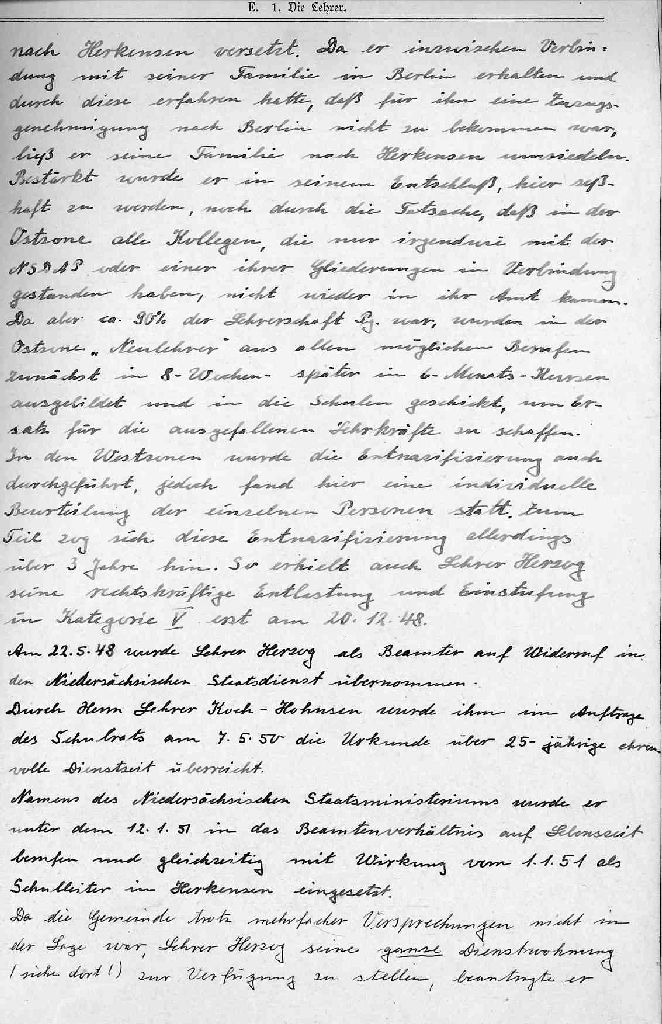 E. 1. Die Lehrer.
nach Herkensen versetzt. Da er inzwischen Verbin-
dung mit seiner Familie in Berlin erhalten und
durch diese erfahren hatte, daß für ihn eine Zuzugs-
genehmigung nach Berlin nicht zu bekommen war,
ließ er seine Familie nach Herkensen umsiedeln.
Bestärkt wurde er in seinem Entschluß, hier seß-
haft zu werden, noch durch die Tatsache, daß in der
Ostzone alle Kollegen, die nur irgendwie mit der
NSDAP oder einer ihrer Gliederungen in Verbindung
gestanden haben, nicht wieder in ihr Amt kamen.
Da aber ca. 90% der Lehrerschaft Pg. war, wurden in der
Ostzone „Neulehrer" aus allen möglichen Berufen
zunächst in 8-Wochen- später in 6-Monats-Kursen
ausgebildet und in die Schulen geschickt, um Er-
satz für die ausgefallenen Lehrkräfte zu schaffen.
In den Westzonen wurde die Entnazifizierung auch
durchgeführt, jedoch fand hier eine individuelle
Beurteilung der einzelnen Personen statt. Zum
Teil zog sich diese Entnazifizierung allerdings
über 3 Jahre hin. So erhielt auch Lehrer Herzog
seine rechtskräftige Entlastung und Einstufung
in Kategorie V erst am 20.12.48.
Am 22.5.48 wurde Lehrer Herzog als Beamter auf Widerruf in
den Niedersächsischen Staatsdienst übernommen.
Durch Herrn Lehrer Koch-Hohnsen wurde ihm im Auftrage
des Schulrats am 7.5.50 die Urkunde über 25-jährige ehren
volle Dienstzeit überreicht.
Namens des Niedersächsischen Staatsministeriums wurde er
unter dem 12.1.51 in das Beamtenverhältnis auf Lebenszeit
berufen und gleichzeitig mit Wirkung vom 1.1.51 als
Schulleiter in Herkensen eingesetzt.
Da die Gemeinde trotz mehrfacher Versprechungen nicht in
der Lage war, Lehrer Herzog seine ganze Dienstwohnung
(siehe dort!) zur Verfügung zu stellen, beantragte er